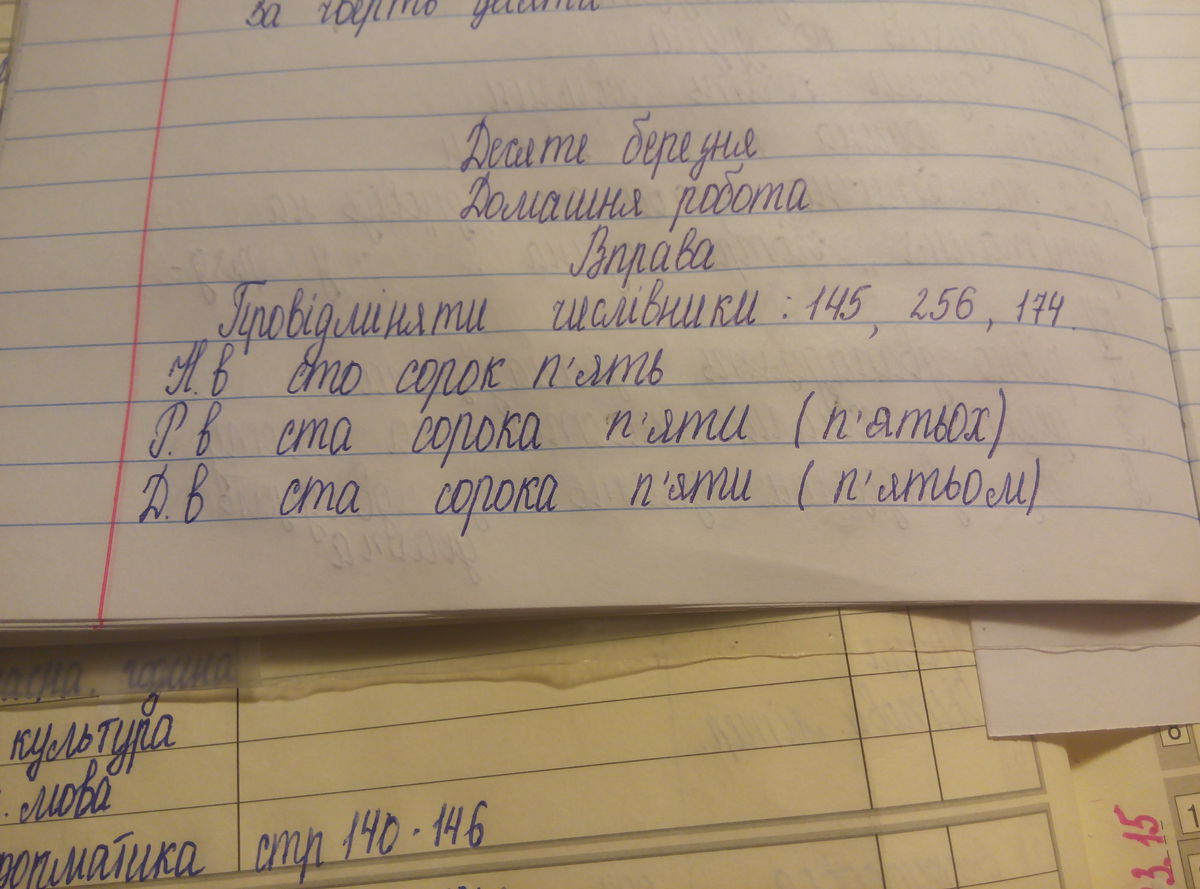 за чверть
Десяте березня
Домашня робота
Вправа
Провідміняти числівники : 145, 256, 174.
Н.в сто сорок п'ять
Р.в ста сорока п'яти (п'ятьох)
Д.в ста сорока п'яти (п'ятьом)
година
культура
мова
стр 140-146
3.15